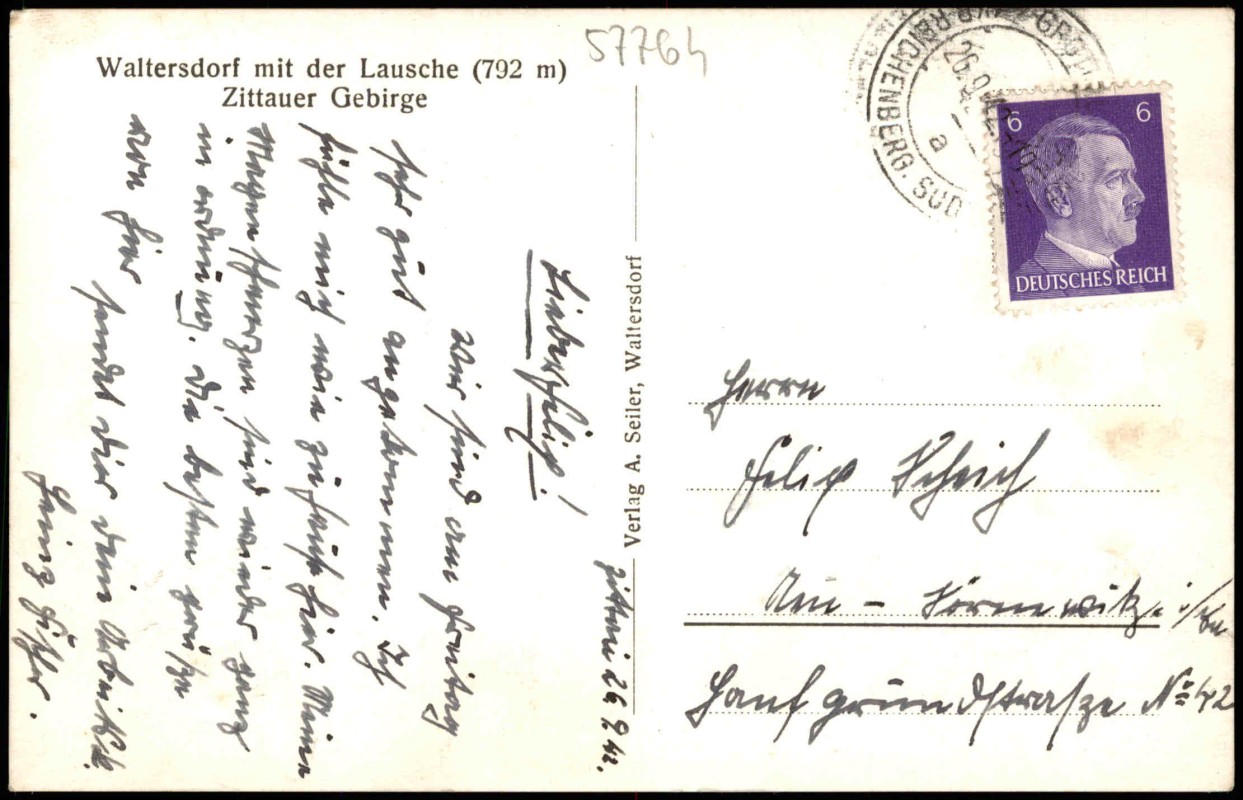 57764
Waltersdorf mit der Lausche (792 m)
Zittauer Gebirge
REICHENBERG. SÜD
26.9.42
a
6 6
DEUTSCHES REICH
Verlag A. Seiler, Waltersdorf
Zittau 26 9 42.
Lieber Felix!
Wir sind am Freitag
sehr gut angekommen. Ich
fühle mich wie zuhause hier. Meine
Magenschmerzen sind wieder ganz
in ordnung. Die besten grüße
von hier sendet dir dein Arbeitsk.
Heinz
Herrn
Felix Scheich
Neu - Sörnewitz i/Sa
Hanfgrundstrasze № 42